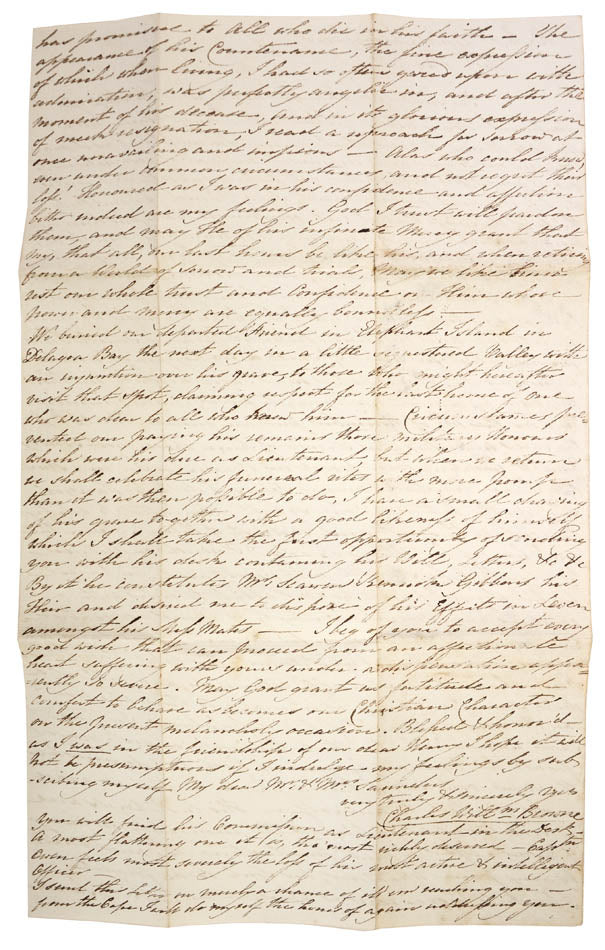 has promised to All who die in his faith – The
appearance of his Countenance, the fine expression
of which when living, I had so often gazed upon with
admiration, was perfectly angelic in, and after the
moment of his decease, and in its glorious expression
of meek resignation, I read a reproach for sorrow at
once unavailing and impious – Alas who could know
even under common circumstances, and not regret their
loss! Honoured as I was in his confidence and affection
bitter indeed are my feelings, God I trust will pardon
them, and may He of his infinite Mercy grant that
my, that all, our last hours be like his, and when retiring
from a World of Sorrow and trial, May we like him
rest our whole trust and Confidence on Him whose
power and mercy are equally boundless –
We buried our departed Friend in Elephant Island in
Delagoa Bay the next day in a little sequestered Valley with
an injunction over his grave, to those who might hereafter
visit that Spot, claiming respect for the last home of one
who was dear to all who knew him – Circumstances pre-
vented our paying his remains those military Honours
which were his due as Lieutenant, but when we return
we shall celebrate his funeral rites with more pomp
than it was then possible to do, I have a small drawing
of his grave together with a good likeness of himself
which I shall take the first opportunity of sending
you with his desk containing his Will, letters, &c &c
By it he constitutes Mr. Gibbons his
Heir and desired me to dispose of his Effects in Leven
amongst his Ship Mates – I beg of you to accept every
good wish that can proceed from an affectionate
heart suffering with yours under a dispensation appa-
-rently so severe. May God grant us fortitude and
comfort to behave as becomes our Christian Character
on the present melancholy occasion. Blessed & honor'd
as I was in the friendship of our dear Henry I hope it will
not be presumptuous if I indulge my feelings by sub
-scribing myself My dear Mr. & Mrs. Saunders
very truly & sincerely yrs
Charles Wm Browne
you will find his Commission as Lieutenant in the desk –
A most flattering one it is, the most nobly deserved – Captn
Owen feels most severely the loss of his most active & intelligent
Officer –
I send this letter on much a chance of its ever reaching you –
from the Cape I will do myself the honor of again addressing you –